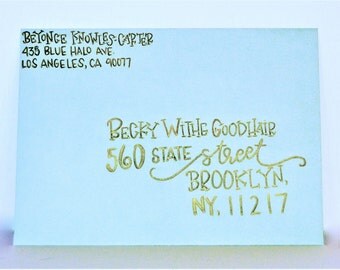 Beyonce Knowles-Carter
435 Blue Halo Ave.
Los Angeles, CA 90077
Becky Withe Goodhair
560 State Street
Brooklyn,
NY, 11217